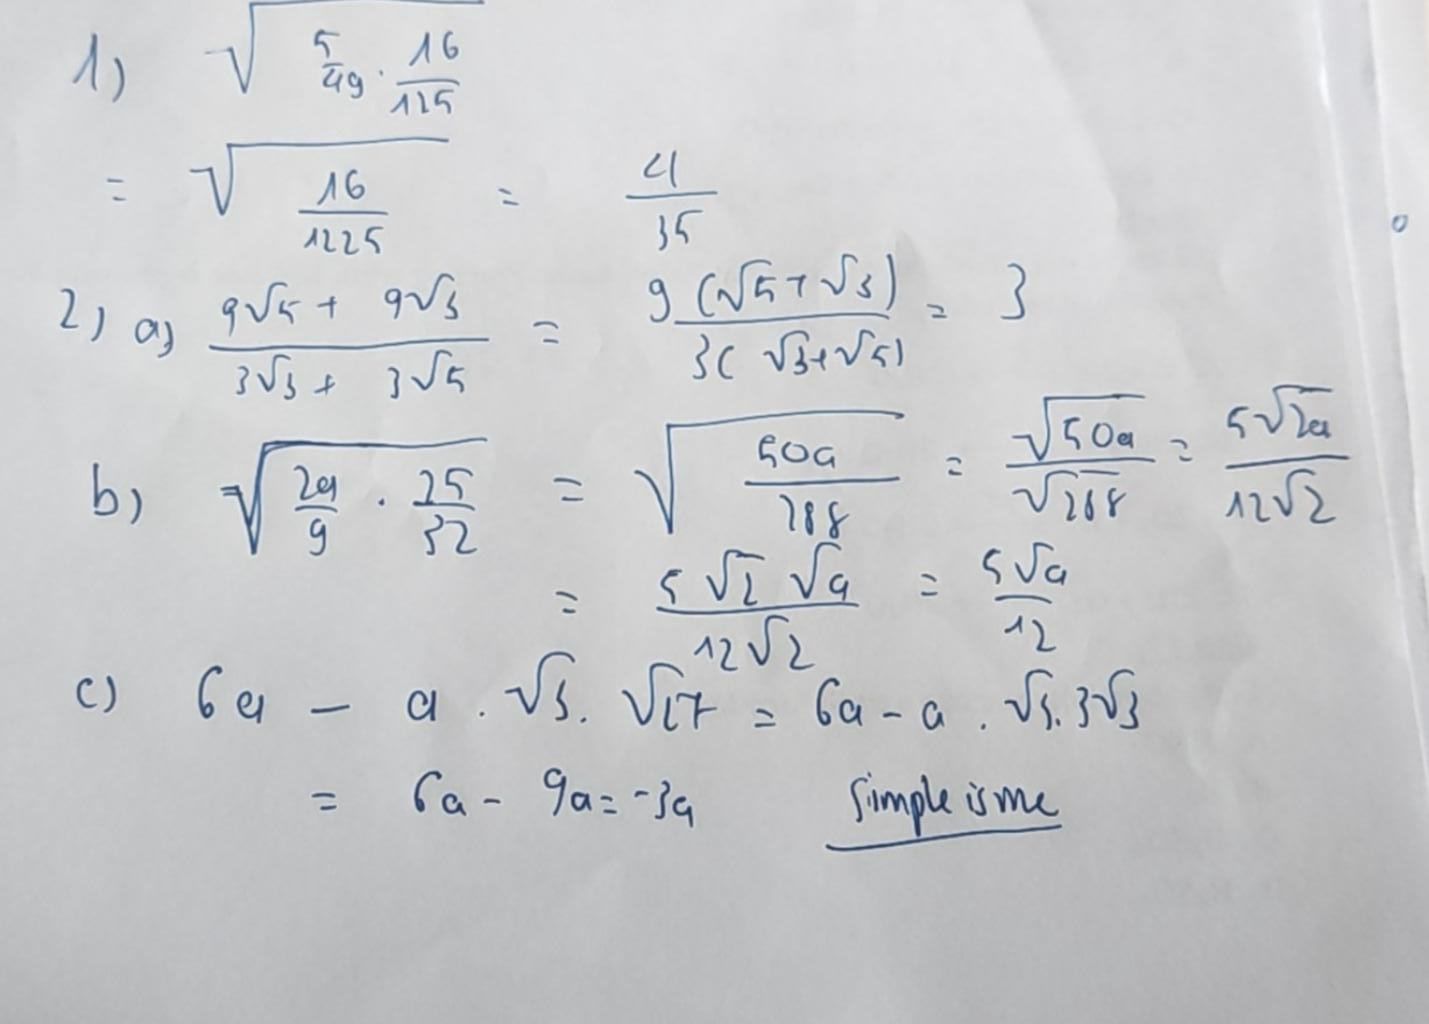 1) √(5/49 · 16/125)
= √(16/1225) = 4/35
2) a) (9√5 + 9√3)/(3√3 + 3√5) = 9(√5+√3)/3(√3+√5) = 3
b) √(2a/9 · 25/32) = √(50a/288) = √50a/√288 = 5√2a/12√2
= 5√2 √a/12√2 = 5√a/12
c) 6a - a . √3 . √27 = 6a - a . √3 . 3√3
= 6a - 9a = -3a simple is me